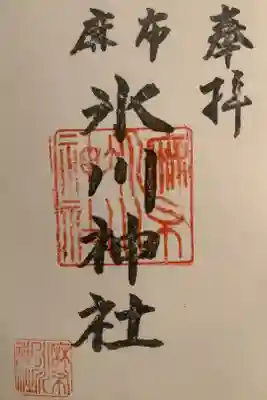 奉拝
麻布
氷川神社